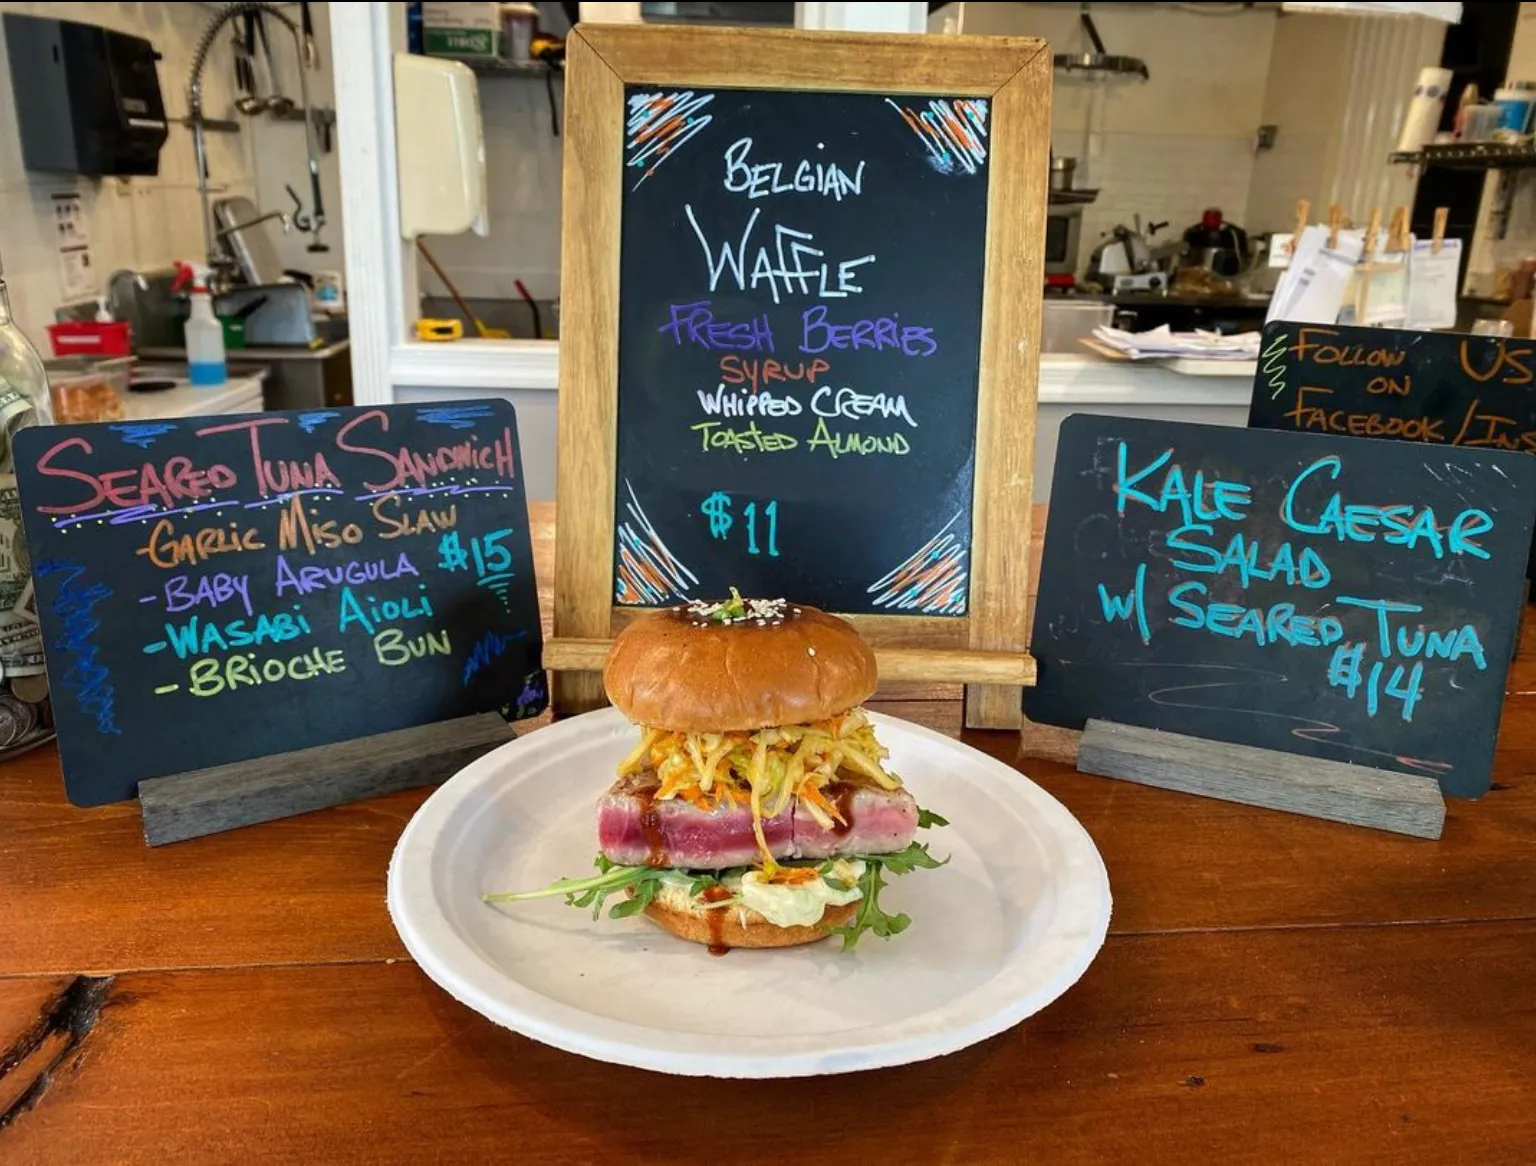 SEARED TUNA SANDWICH
-GARLIC MISO SLAW
$15
-BABY ARUGULA
-WASABI AIOLI
-BRIOCHE BUN
BELGIAN
WAFFLE
FRESH BERRIES
SYRUP
WHIPPED CREAM
TOASTED ALMOND
$11
FOLLOW US
ON
FACEBOOK/INS
KALE CAESAR
SALAD
W/ SEARED TUNA
$14